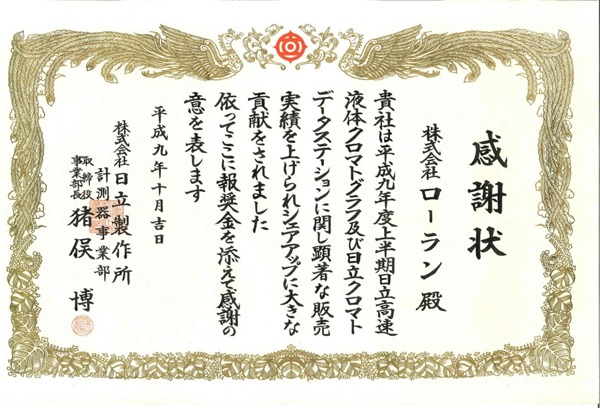 感謝状
株式会社 ローラン 殿
貴社は平成九年度上半期日立高速
液体クロマトグラフ及び日立クロマト
データステーションに関し顕著な販売
実績を上げられシェアアップに大きな
貢献をされました
依ってここに報奨金を添えて感謝の
意を表します
平成九年十月吉日
株式会社 日立製作所
計測器事業部
取締役
事業部長 猪俣 博